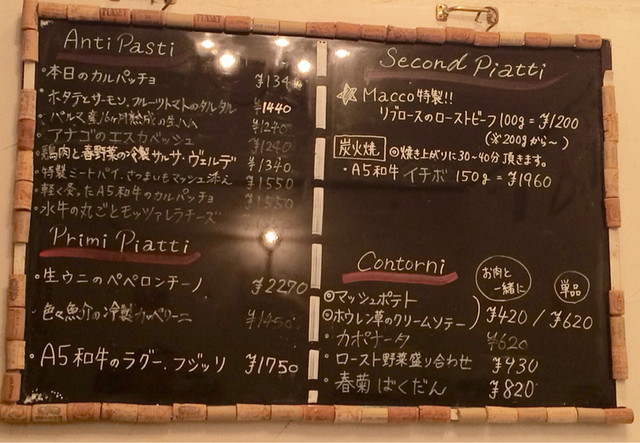 Anti Pasti
・本日のカルパッチョ ¥134
・ホタテとサーモン、フルーツトマトのタルタル ¥1440
・パルマ産16ヶ月熟成の生ハム ¥1240
・アナゴのエスカベッシュ ¥1240
・鶏肉と春野菜の冷製サルサ・ヴェルデ ¥1340
・特製ミートパイ、さつまいもマッシュ添え ¥1550
・軽く炙ったA5和牛のカルパッチョ ¥1550
・水牛の丸ごとモッツァレラチーズ
Primi Piatti
・生ウニのペペロンチーノ ¥2270
・色々魚介の冷製カッペリーニ ¥1450
・A5和牛のラグー、フジッリ ¥1750
Second Piatti
☆ Macco特製!!
リブロースのローストビーフ 100g=¥1200
(※200gから〜)
炭火焼 ◎焼き上がりに30〜40分頂きます。
・A5和牛 イチボ 150g=¥1960
Contorni
お肉と一緒に 単品
◎マッシュポテト
◎ホウレン草のクリームソテー ) ¥420 / ¥620
・カポナータ ¥620
・ロースト野菜盛り合わせ ¥930
・春菊ばくだん ¥820